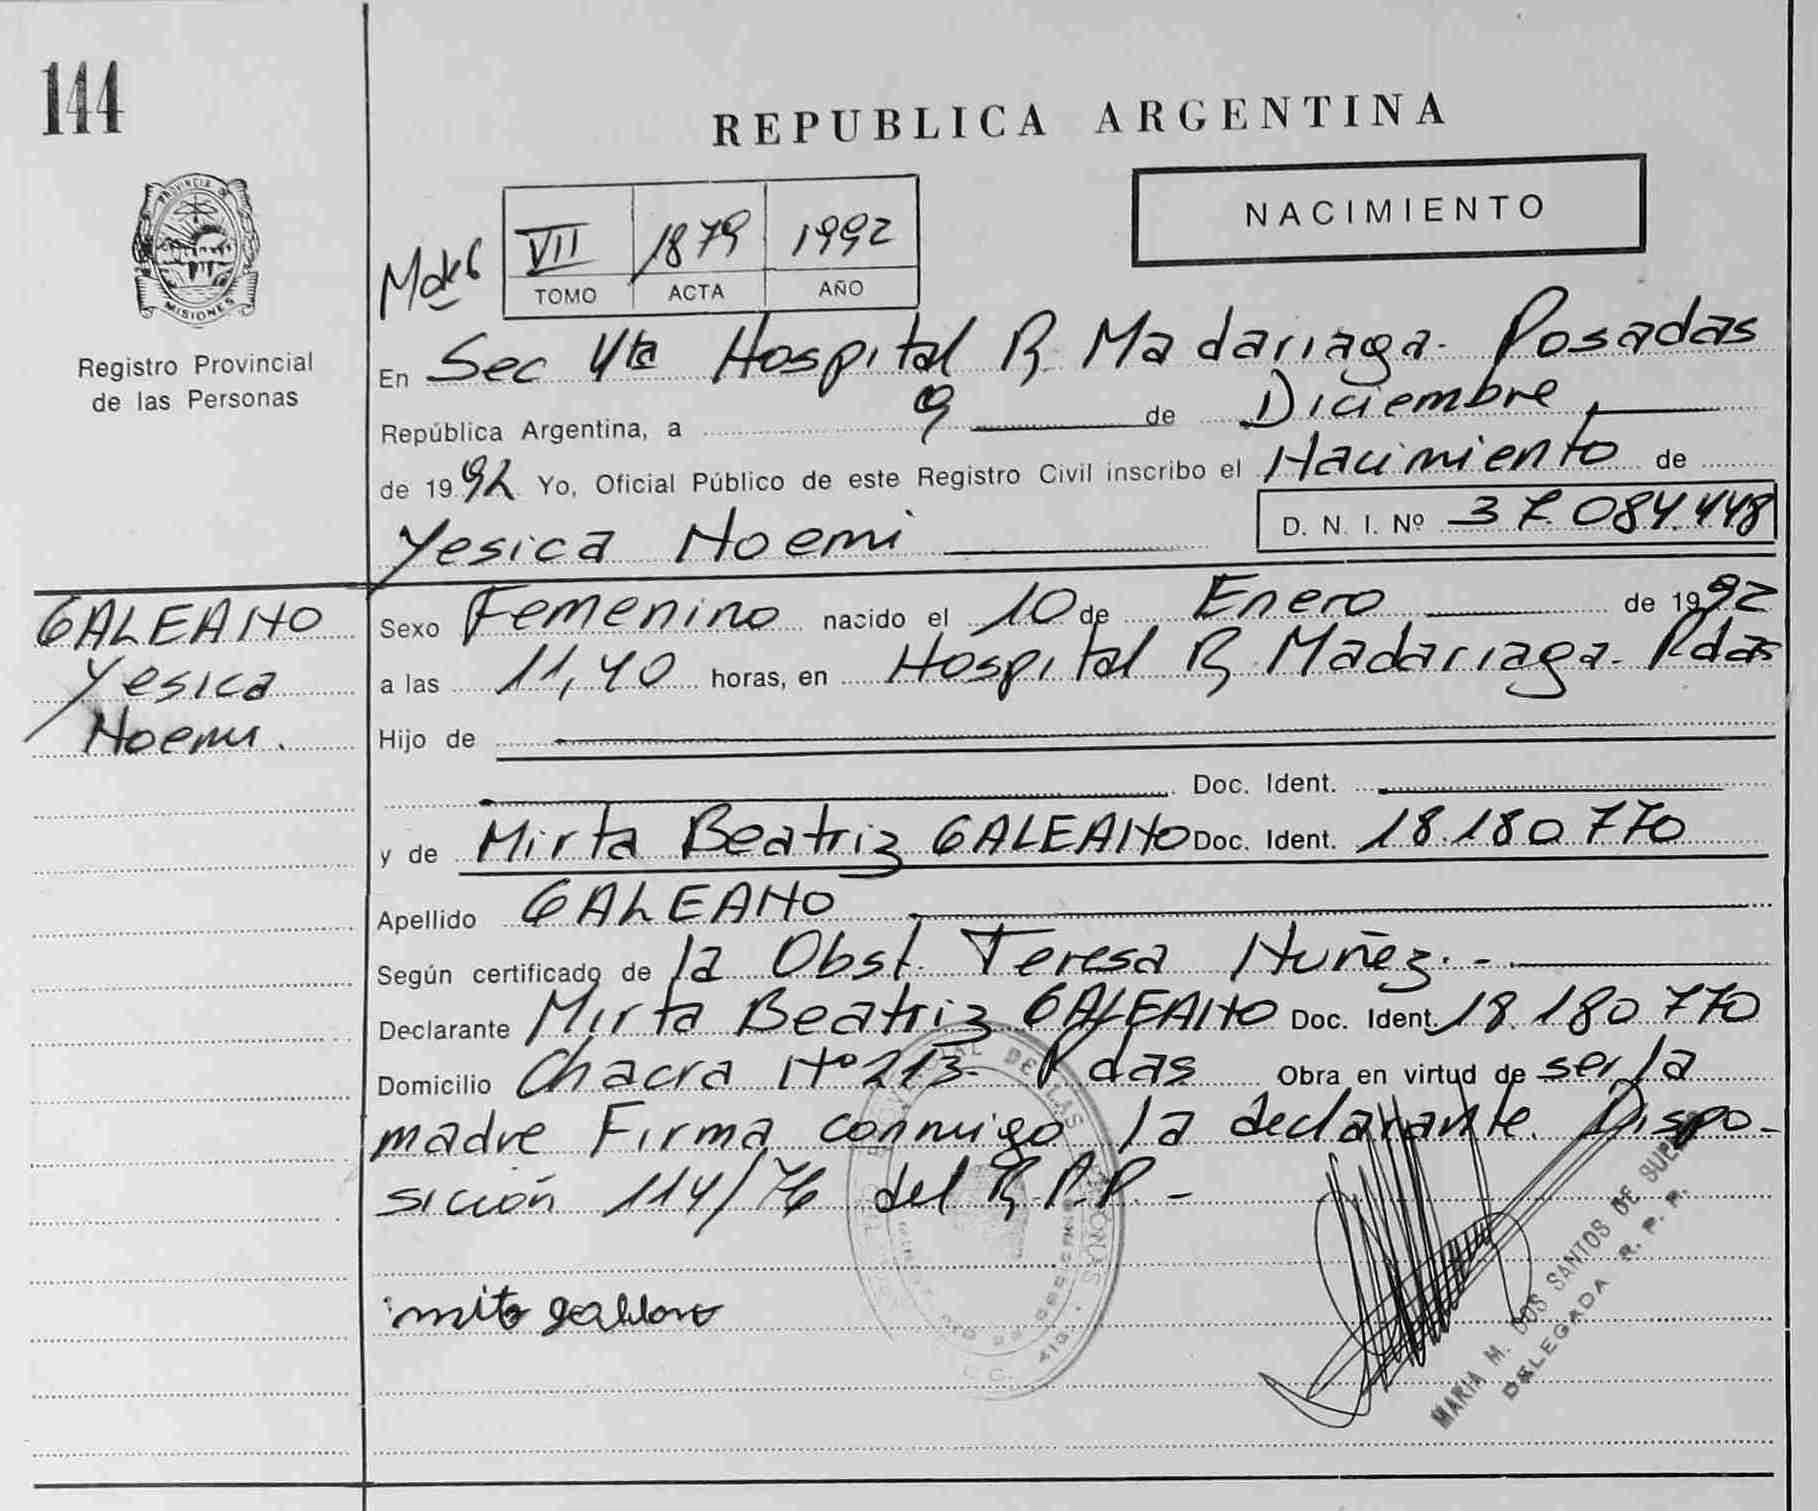 144
REPUBLICA ARGENTINA
NACIMIENTO
VII 1879 1992
TOMO ACTA AÑO
PROVINCIA DE MISIONES
Registro Provincial
de las Personas
En Sec 4ta Hospital R. Madariaga. Posadas
República Argentina, a 9 de Diciembre
de 1992 Yo, Oficial Público de este Registro Civil inscribo el Nacimiento de
Yesica Noemi D. N. I. Nº 37.084.448
GALEANO
Yesica
Noemi.
Sexo Femenino nacido el 10 de Enero de 1992
a las 11,40 horas, en Hospital R. Madariaga. Pdas
Hijo de
Doc. Ident.
y de Mirta Beatriz GALEANO Doc. Ident. 18.180.770
Apellido GALEANO
Según certificado de la Obst. Teresa Nuñez. -
Declarante Mirta Beatriz GALEANO Doc. Ident. 18.180.770
Domicilio Chacra Nº 213- Pdas Obra en virtud de ser la
madre Firma conmigo la declarante. Dispo-
sición 114/76 del R.P.P. -
MARIA M. DOS SANTOS DE
DELEGADA R. P. P.